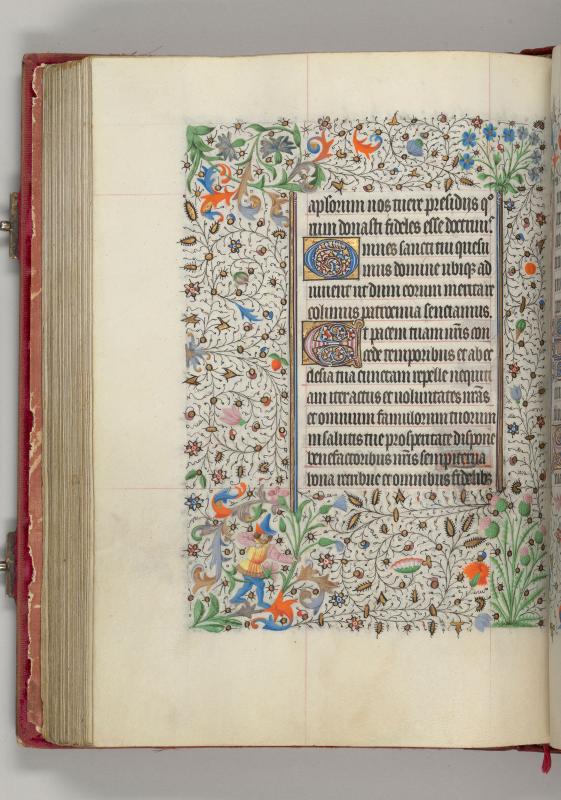 apsorum nos tuere presidijs q̄
rum donasti fideles esse doctrinis
Omnes sancti tui quesu
mus domine ubiq̨ ad
iuuent ut dum eorum merita re
colimus patrocinia senciamus.
Et pacem tuam nr̄is con
cede temporibus et ab ec
clesia tua cunctam repelle nequici
am iter actus et uoluntates nr̄as
et omnium famulorum tuorum
in salutis tue prosperitate dispone
benefactoribus nr̄is sempiterna
bona retribue et omnibus fidelibꝫ